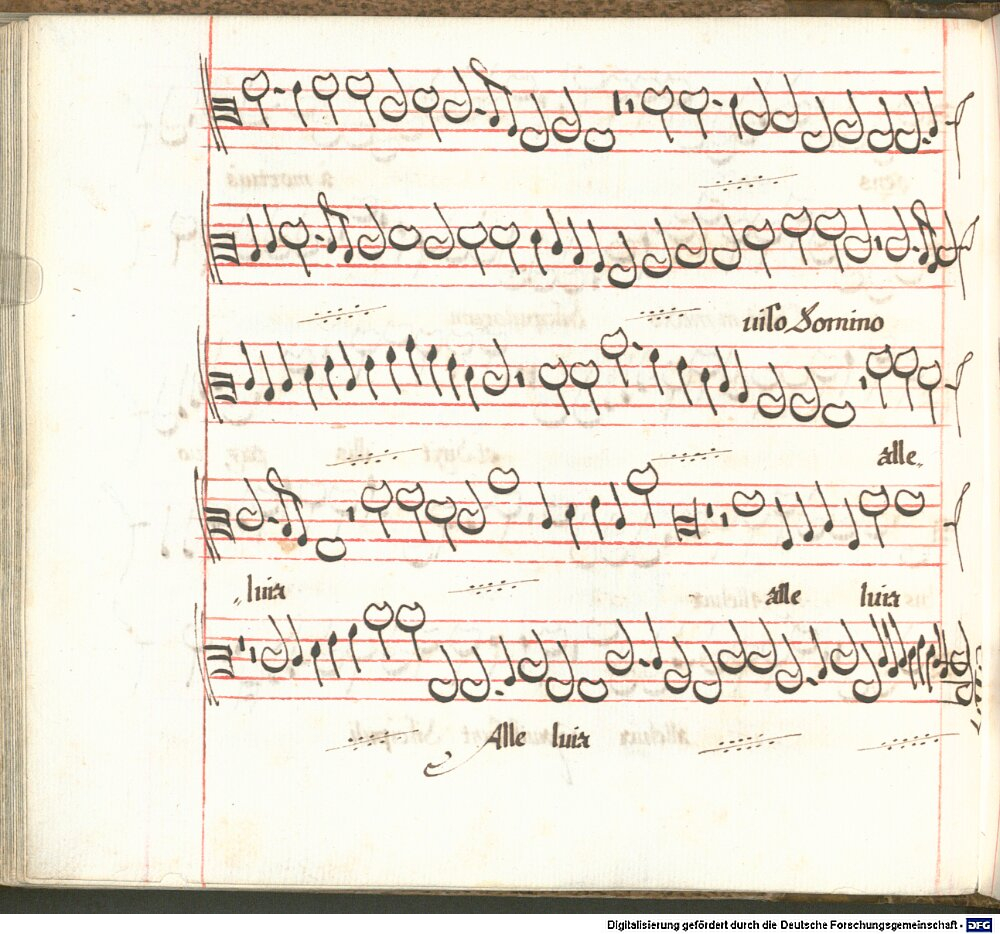 uiso Domino
alle„
„luia
alle luia
Alle luia
Digitalisierung gefördert durch die Deutsche Forschungsgemeinschaft - DFG